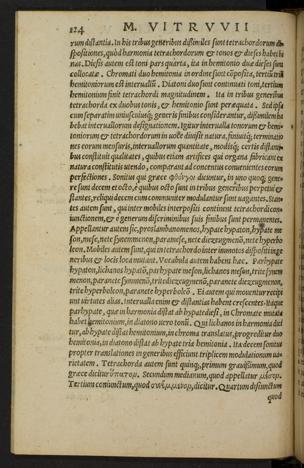 124 M. VITRVVII
rum distantia. In his tribus generibus dissimiles sunt tetrachordorum di-
spositiones, quòd harmonia tetrachordorum & tonos & dieses habet bi-
nas. Diesis autem est toni pars quarta, ita in hemitonio duæ dieses sunt
collocatæ. Chromati duo hemitonia in ordine sunt cõposita, tertiũ triũ
hemitoniorum est interuallũ. Diatoni duo sunt continuati toni, tertium
hemitonium finit tetrachordi magnitudinem. Ita in tribus generibus
tetrachorda ex duobus tonis, & hemitonio sunt peræquata. Sed ipsa
cum separatim uniuscuiusq; generis finibus considerantur, dissimilem ha
bebat interuallorum designationem. Igitur interualla tonorum & hemi
toniorum & tetrachordorum in uoce diuisit natura, finiuitq; terminatio
nes eorum mensuris, interuallorum quantitate, modisq; certis distanti-
bus constituit qualitates, quibus etiam artifices qui organa fabricant ex
natura constitutis utendo, comparant ad concentus conuenientes eorum
perfectiones. Sonitus qui græce φθόγγοι dicuntur, in uno quoq; gene-
re sunt decem et octo, è quibus octo sunt in tribus generibus perpetui &
stantes, reliqui decem cum communiter modulantur sunt uagantes. Stan-
tes autem sunt, qui inter mobiles interpositi continent tetrachordi con-
iunctionem, & è generum discriminibus suis finibus sunt permanentes.
Appellantur autem sic, proslambanomenos, hypate hypaton, hypate me
son, mese, nete synemmenon, paramese, nete diezeugmenõ, nete hyperbo
leon. Mobiles autem sunt, qui in tetrachordo inter immotos dispositi in ge
neribus & locis loca mutant. Vocabula autem habent hæc. Parhypate
hypaton, lichanos hypatõ, parhypate meson, lichanos meson, trite synem
menon, paranete synemmẽõ, trite diezeugmenõ, paranete diezeugmenon,
trite hyperboleon, paranete hyperboleõ. Ei autem qui mouentur recipi
unt uirtutes alias. Interualla enim & distantias habent crescentes. Itaque
parhypate, quæ in harmonia distat ab hypate diesi, in Chromate mutata
habet hemitonium, in diatono uero toni. Qui lichanos in harmonia dici
tur, ab hypate distat hemitonium, in chroma translatus, progreditur duo
hemitonia, in diatono distat ab hypate tria hemitonia. Ita decem sonitus
propter translationes in generibus efficiunt triplicem modulationum ua-
rietatem. Tetrachorda autem sunt quinq;, primum grauissimum, quod
græce dicitur ὕπατον. Secundum medianum, quod appellatur μέσον.
Tertium coniunctum, quod συνημμένον, dicitur. Quartum disiunctum
quod